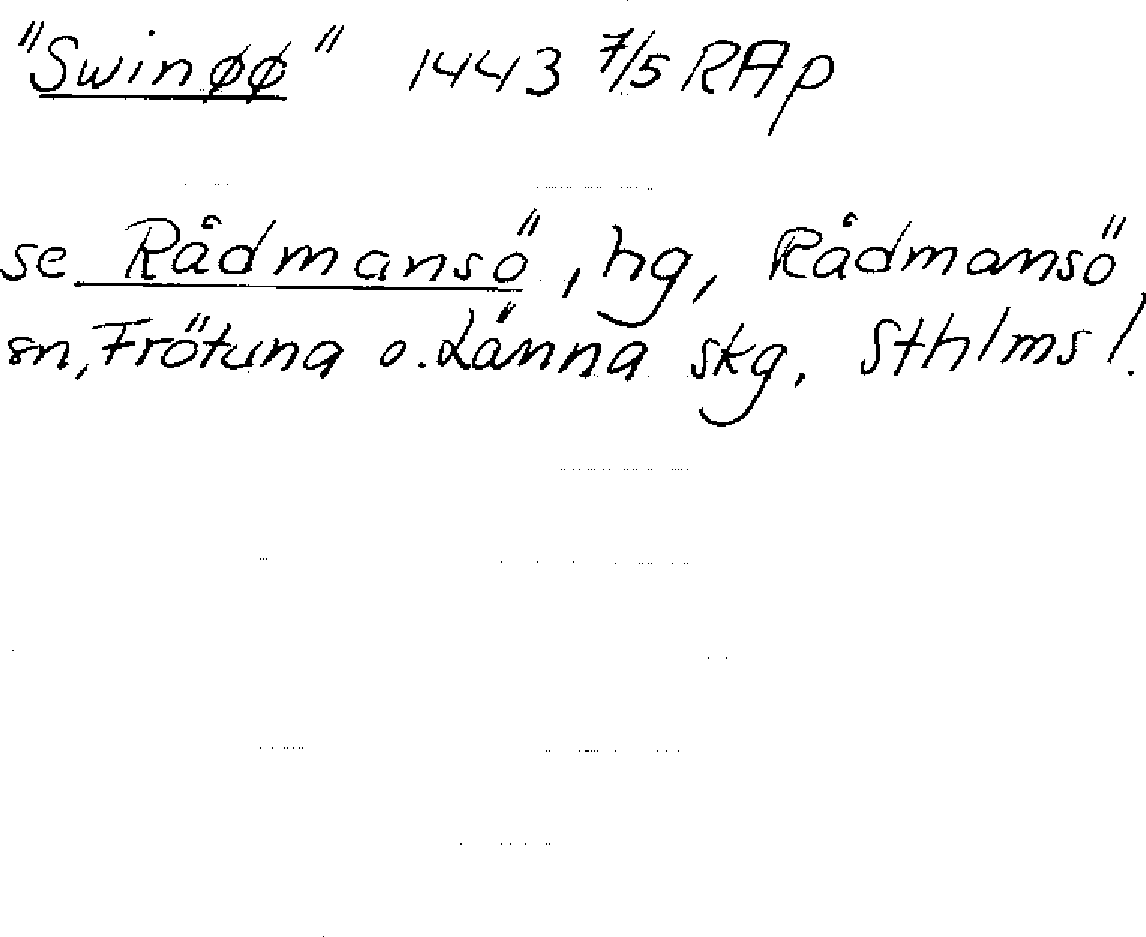 "Swinøø" 1443 7/5 RAp
se Rådmansö, hg, Rådmansö
sn, Frötuna o. Länna skg, Sthlms l.